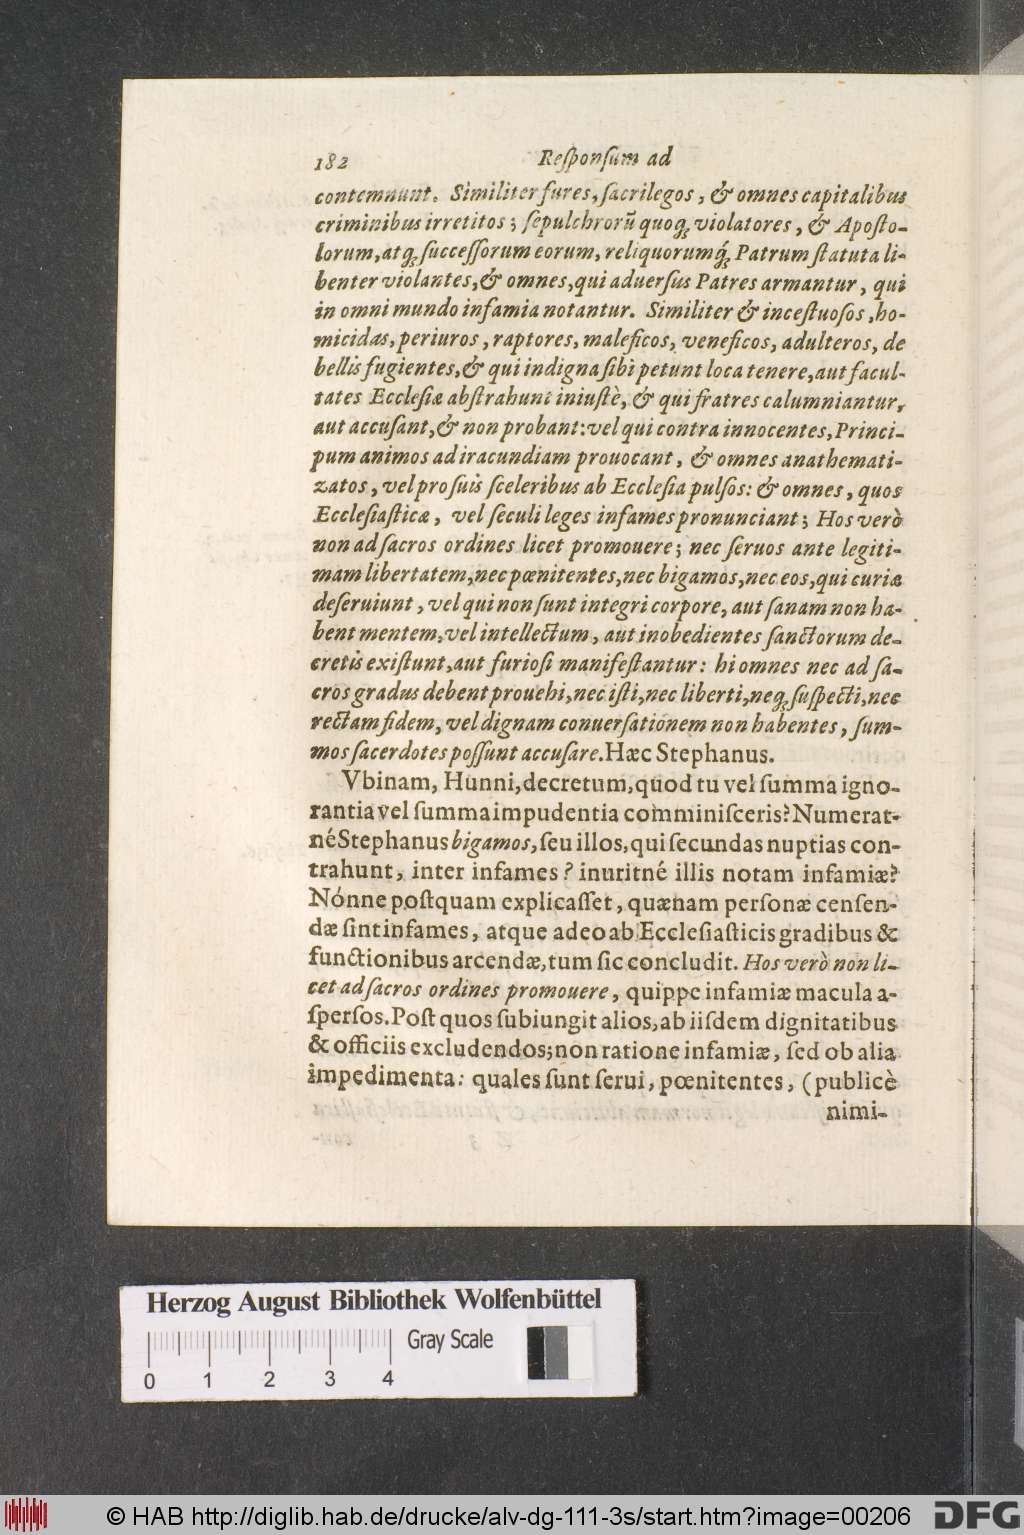 182 Reſponſum ad
contemnunt. Similiter fures, ſacrilegos, & omnes capitalibus
criminibus irretitos; ſepulchrorũ quoq; violatores, & Apoſto-
lorum, atq; ſucceſſorum eorum, reliquorumq́; Patrum ſtatuta li-
benter violantes, & omnes, qui aduerſus Patres armantur, qui
in omni mundo infamia notantur. Similiter & inceſtuoſos, ho-
micidas, periuros, raptores, maleficos, veneficos, adulteros, de
bellis fugientes, & qui indigna ſibi petunt loca tenere, aut facul-
tates Eccleſiæ abſtrahunt iniuſtè, & qui fratres calumniantur,
aut accuſant, & non probant: vel qui contra innocentes, Princi-
pum animos ad iracundiam prouocant, & omnes anathemati-
zatos, vel pro ſuis ſceleribus ab Eccleſia pulſos: & omnes, quos
Eccleſiaſticæ, vel ſeculi leges infames pronunciant; Hos verò
non ad ſacros ordines licet promouere; nec ſeruos ante legiti-
mam libertatem, nec pœnitentes, nec bigamos, nec eos, qui curiæ
deſeruiunt, vel qui non ſunt integri corpore, aut ſanam non ha-
bent mentem, vel intellectum, aut inobedientes ſanctorum de-
cretis exiſtunt, aut furioſi manifeſtantur: hi omnes nec ad ſa-
cros gradus debent prouehi, nec iſti, nec liberti, neq; ſuſpecti, nec
rectam fidem, vel dignam conuerſationem non habentes, ſum-
mos ſacerdotes poſſunt accuſare. Hæc Stephanus.
Vbinam, Hunni, decretum, quod tu vel ſumma igno-
rantia vel ſumma impudentia comminiſceris? Numerat-
né Stephanus bigamos, ſeu illos, qui ſecundas nuptias con-
trahunt, inter infames? inuritné illis notam infamiæ?
Nónne poſtquam explicaſſet, quænam perſonæ cenſen-
dæ ſint infames, atque adeo ab Eccleſiaſticis gradibus &
functionibus arcendæ, tum ſic concludit. Hos verò non li-
cet ad ſacros ordines promouere, quippe infamiæ macula a-
ſperſos. Poſt quos ſubiungit alios, ab iiſdem dignitatibus
& officiis excludendos; non ratione infamiæ, ſed ob alia
impedimenta: quales ſunt ſerui, pœnitentes, (publicè
nimi-
Herzog August Bibliothek Wolfenbüttel
Gray Scale
0 1 2 3 4
© HAB http://diglib.hab.de/drucke/alv-dg-111-3s/start.htm?image=00206
DFG